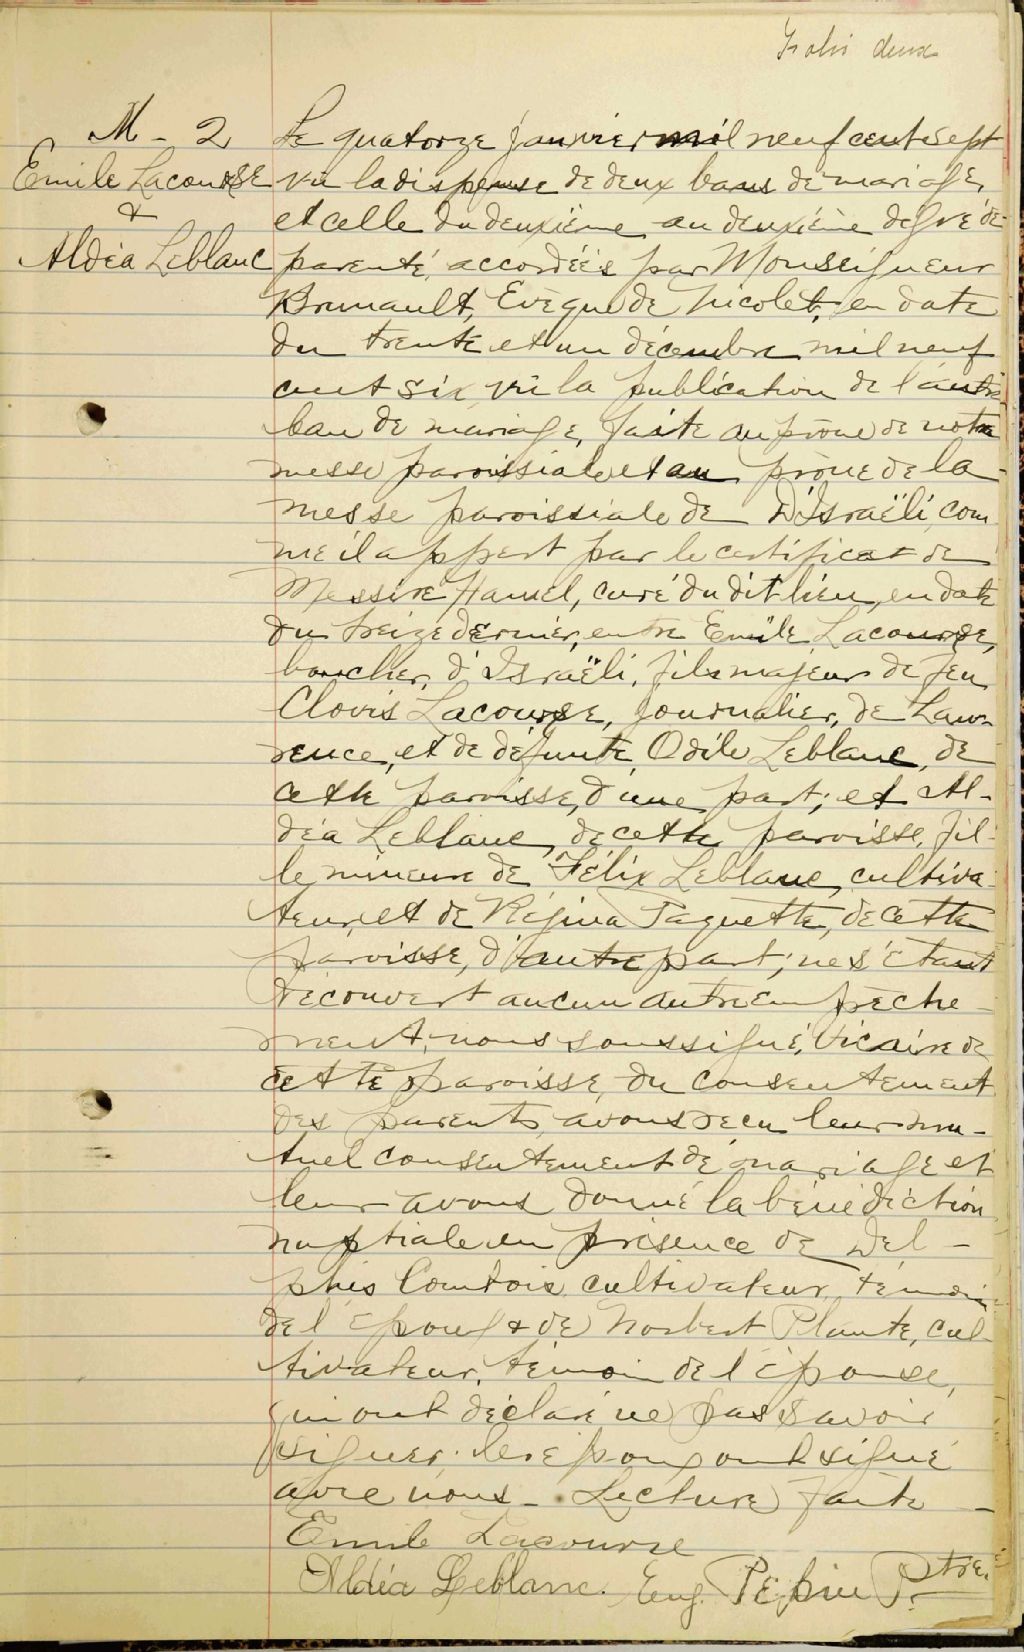 Folio deux
M - 2
Emile Lacourse
&
Aldéa Leblanc
Le quatorze janvier mil neuf cent sept
vu la dispense de deux bans de mariage,
et celle du deuxième au deuxième degré de
parenté, accordées par Monseigneur
Brunault, Evêque de Nicolet, en date
du trente et un décembre mil neuf
cent six, vu la publication de l'autre
ban de mariage, faite au prône de notre
messe paroissiale et au prône de la
messe paroissiale de D'Israëli, com
me il appert par le certificat de
Messire Hamel, curé du dit lieu, en date
du treize dernier, entre Emile Lacourse,
boucher, d'Israëli, fils majeur de feu
Clovis Lacourse, journalier, de Law-
rence, et de défunte Odile Leblanc, de
cette paroisse, d'une part; et Al-
déa Leblanc, de cette paroisse, fil-
le mineure de Félix Leblanc, cultiva-
teur, et de Régina Paquette, de cette
paroisse, d'autre part; ne s'étant
découvert aucun autre empêche-
ment, nous soussigné, Vicaire de
cette paroisse, du consentement
des parents, avons reçu leur mu-
tuel consentement de mariage et
leur avons donné la bénédiction
nuptiale en présence de Del-
phis Comtois, cultivateur, témoin
de l'époux & de Norbert Plante, cul-
tivateur, témoin de l'épouse,
qui ont déclaré ne pas savoir
signer. Les époux ont signé
avec nous - Lecture faite -
Emile Lacourse
Aldéa Leblanc. Eug. Pépin Ptre.